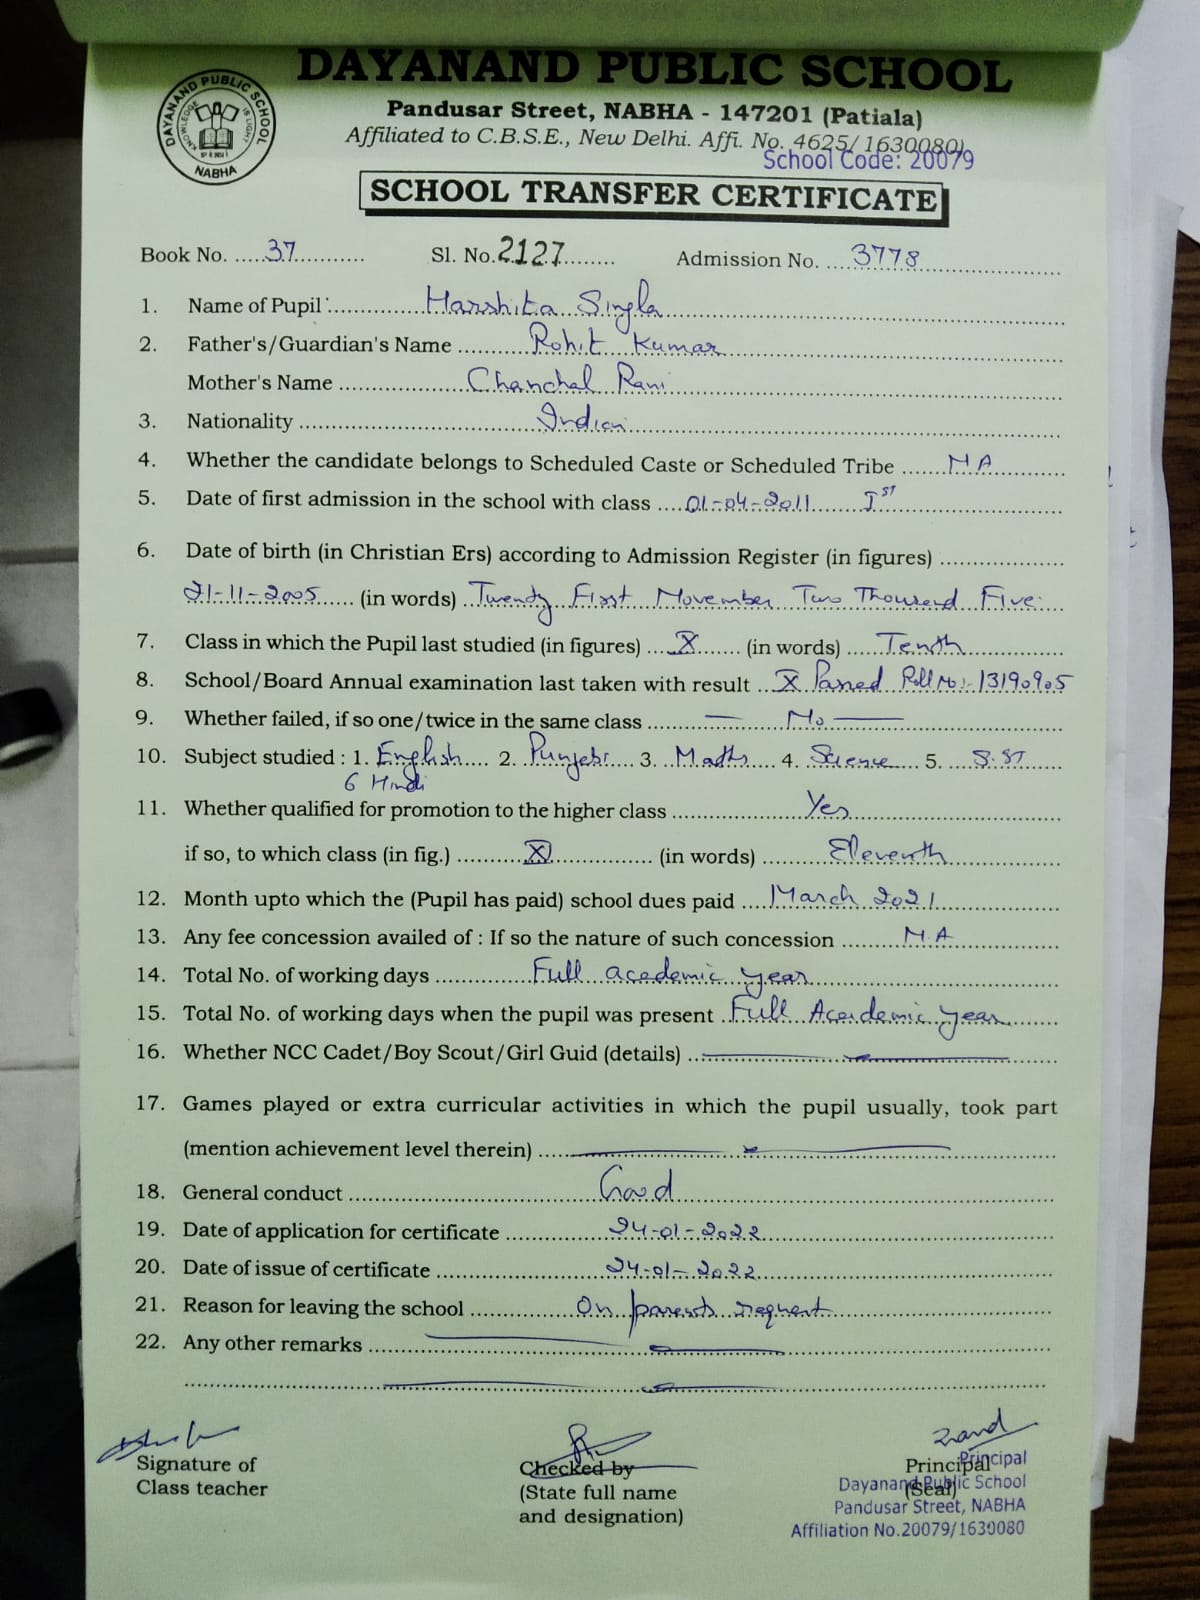 DAYANAND PUBLIC SCHOOL
DAYANAND PUBLIC SCHOOL
KNOWLEDGE IS LIGHT
NABHA
Pandusar Street, NABHA - 147201 (Patiala)
Affiliated to C.B.S.E., New Delhi. Affi. No. 4625/1630080)
School Code: 20079
SCHOOL TRANSFER CERTIFICATE
Book No. .....37........... Sl. No.2127........ Admission No. ...3778....................
1. Name of Pupil :.............Harshita Singla....................
2. Father's/Guardian's Name ..........Rohit Kumar....................
Mother's Name ..................Chanchal Rani....................
3. Nationality ..................Indian....................
4. Whether the candidate belongs to Scheduled Caste or Scheduled Tribe ......NA..........
5. Date of first admission in the school with class ....01-04-2011........Ist..........
6. Date of birth (in Christian Ers) according to Admission Register (in figures) ..................
21-11-2005..... (in words) ..Twenty First November Two Thousand Five.
7. Class in which the Pupil last studied (in figures) ....X....... (in words) .....Tenth..........
8. School/Board Annual examination last taken with result ..X Passed Roll No:-13190905
9. Whether failed, if so one/twice in the same class ........— No —..........
10. Subject studied : 1. English.... 2. Punjabi... 3. Maths.... 4. Science... 5. ...S.ST.....
6 Hindi
11. Whether qualified for promotion to the higher class ..................Yes..................
if so, to which class (in fig.) ..........XI............... (in words) ..........Eleventh..........
12. Month upto which the (Pupil has paid) school dues paid ....March 2021..........
13. Any fee concession availed of : If so the nature of such concession .........N.A..........
14. Total No. of working days .............Full acedemic year....................
15. Total No. of working days when the pupil was present ..Full Academic year.......
16. Whether NCC Cadet/Boy Scout/Girl Guid (details) ..————
17. Games played or extra curricular activities in which the pupil usually, took part
(mention achievement level therein) .....————
18. General conduct ..............................Good..............................
19. Date of application for certificate ..............24-01-2022....................
20. Date of issue of certificate ....................24-01-2022....................
21. Reason for leaving the school .............On parents request..............
22. Any other remarks ........————
Signature of
Class teacher
Checked by
(State full name
and designation)
Principal
(Seal)
Principal
Dayanand Public School
Pandusar Street, NABHA
Affiliation No.20079/1630080